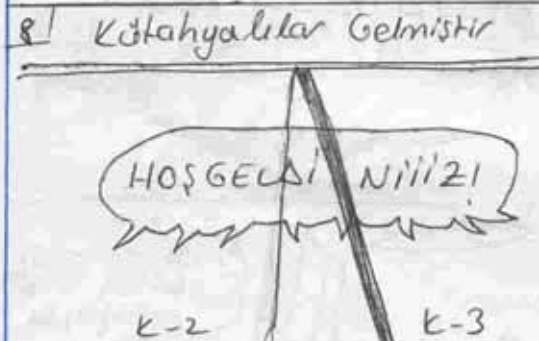 8 Kütahyalılar Gelmiştir
HOŞGELDİ NİİİZ!
K-2 K-3